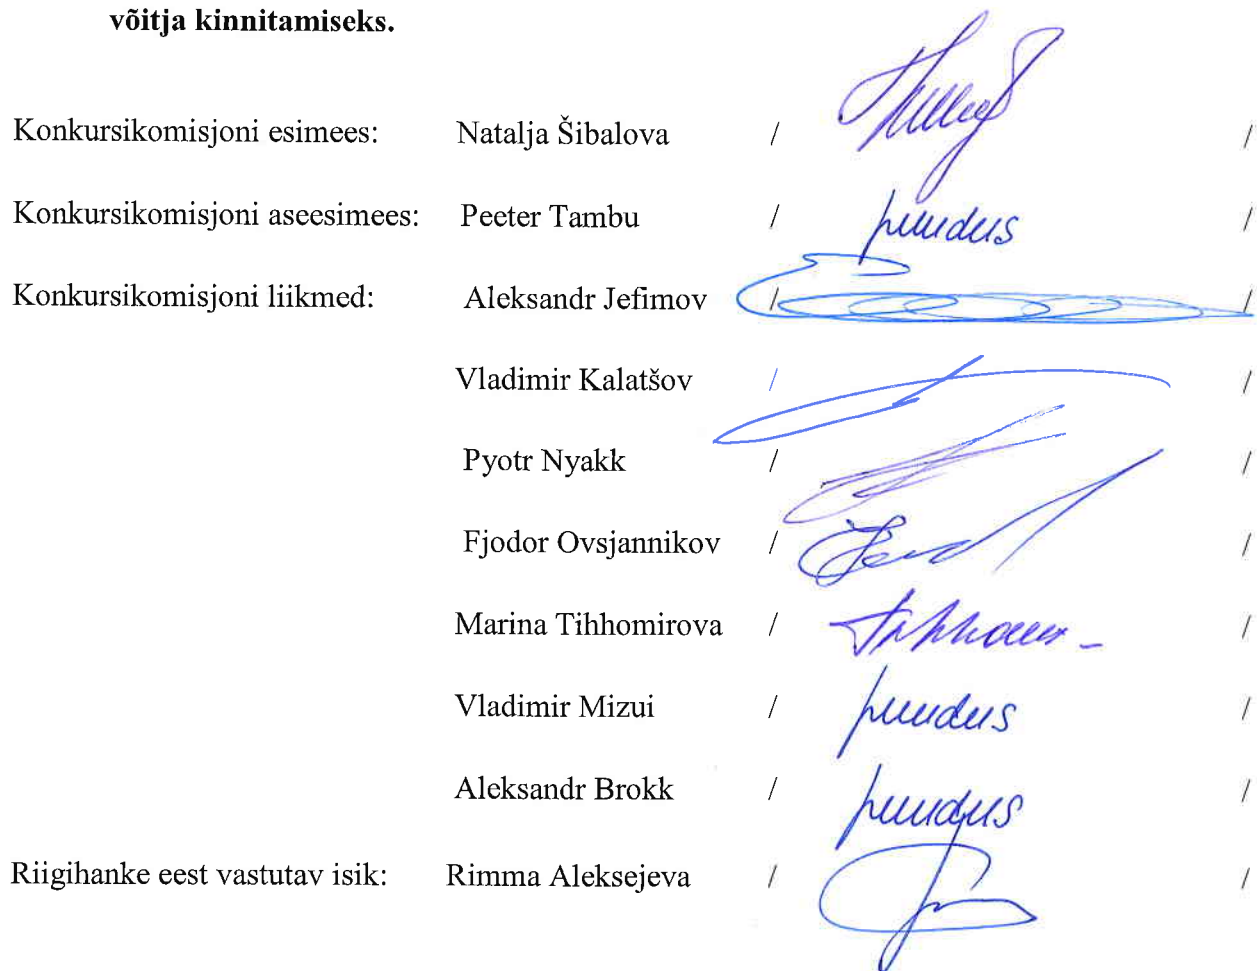 võitja kinnitamiseks.
Konkursikomisjoni esimees: Natalja Šibalova / /
Konkursikomisjoni aseesimees: Peeter Tambu / puudus /
Konkursikomisjoni liikmed: Aleksandr Jefimov / /
Vladimir Kalatšov / /
Pyotr Nyakk / /
Fjodor Ovsjannikov / /
Marina Tihhomirova / /
Vladimir Mizui / puudus /
Aleksandr Brokk / puudus /
Riigihanke eest vastutav isik: Rimma Aleksejeva / /